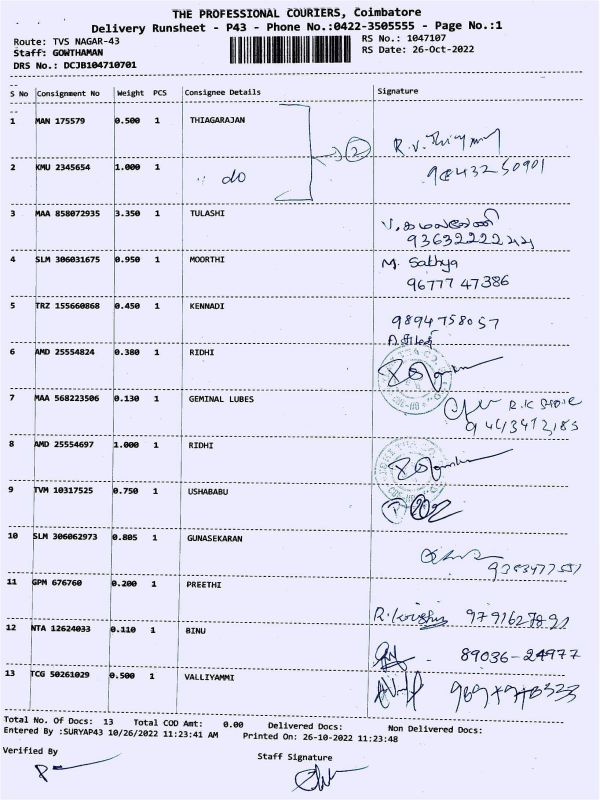 THE PROFESSIONAL COURIERS, Coimbatore
Delivery Runsheet - P43 - Phone No.:0422-3505555 - Page No.:1
Route: TVS NAGAR-43 RS No.: 1047107
Staff: GOWTHAMAN RS Date: 26-Oct-2022
DRS No.: DCJB104710701
S No Consignment No Weight PCS Consignee Details Signature
1 MAN 175579 0.500 1 THIAGARAJAN 2
2 KMU 2345654 1.000 1 do 9843250901
3 MAA 858072935 3.350 1 TULASHI
4 SLM 306031675 0.950 1 MOORTHI M. Sathya
96777 47386
5 TRZ 155660868 0.450 1 KENNADI 9894758057
6 AMD 25554824 0.380 1 RIDHI
7 MAA 568223506 0.130 1 GEMINAL LUBES
8 AMD 25554697 1.000 1 RIDHI
9 TVM 10317525 0.750 1 USHABABU
10 SLM 306062973 0.805 1 GUNASEKARAN
11 GPM 676760 0.200 1 PREETHI
12 NTA 12624033 0.110 1 BINU 89036-24977
13 TCG 50261029 0.500 1 VALLIYAMMI
Total No. Of Docs: 13 Total COD Amt: 0.00 Delivered Docs: Non Delivered Docs:
Entered By :SURYAP43 10/26/2022 11:23:41 AM Printed On: 26-10-2022 11:23:48
Verified By Staff Signature